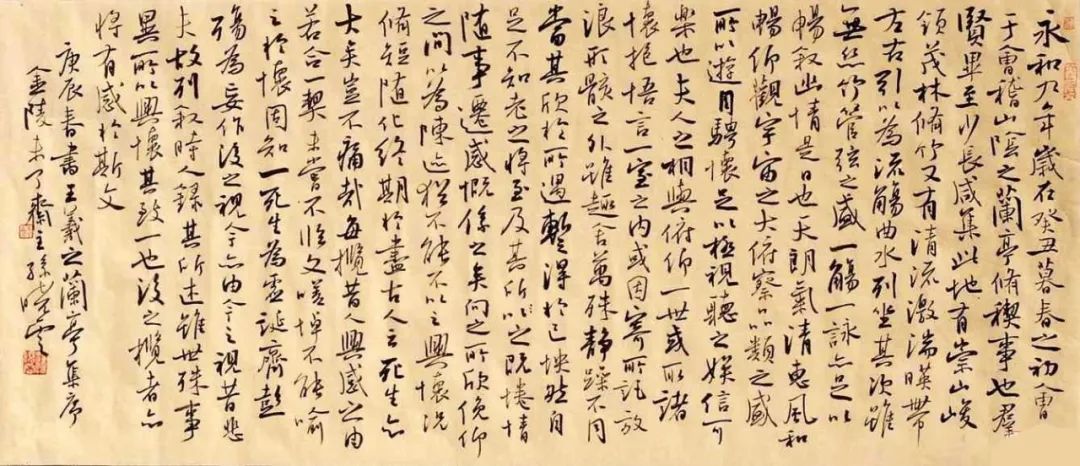 永和九年歲在癸丑暮春之初會
于會稽山陰之蘭亭脩禊事也羣
賢畢至少長咸集此地有崇山峻
領茂林脩竹又有清流激湍暎帶
左右引以為流觴曲水列坐其次雖
無絲竹管弦之盛一觴一詠亦足以
暢敘幽情是日也天朗氣清惠風和
暢仰觀宇宙之大俯察品類之盛
所以遊目騁懷足以極視聽之娛信可
樂也夫人之相與俯仰一世或取諸
懷抱悟言一室之內或因寄所託放
浪形骸之外雖趣舍萬殊靜躁不同
當其欣於所遇暫得於己怏然自
足不知老之將至及其所之既惓情
隨事遷感慨係之矣向之所欣俛仰
之間以為陳迹猶不能不以之興懷況
脩短隨化終期於盡古人云死生亦
大矣豈不痛哉每攬昔人興感之由
若合一契未嘗不臨文嗟悼不能喻
之於懷固知一死生為虛誕齊彭
殤為妄作後之視今亦由今之視昔悲
夫故列敘時人錄其所述雖世殊事
異所以興懷其致一也後之攬者亦
將有感於斯文
庚辰春書王羲之蘭亭集序
金陵未了齋主孫曉雲